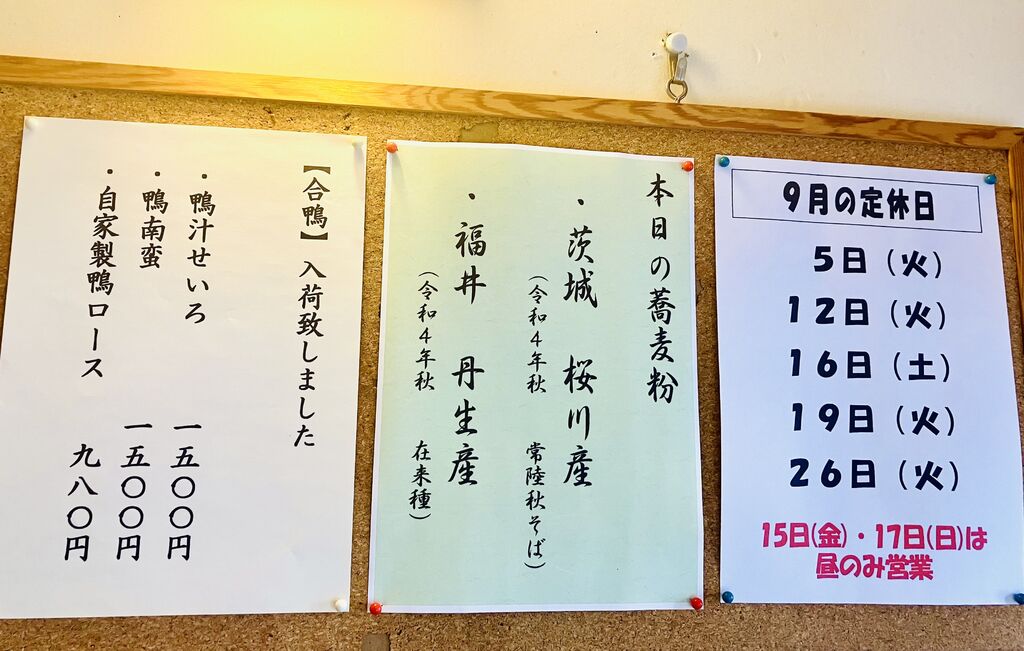 【合鴨】入荷致しました
・鴨汁せいろ 一五〇〇円
・鴨南蛮 一五〇〇円
・自家製鴨ロース 九八〇円
本日の蕎麦粉
・茨城 桜川産
(令和4年秋 常陸秋そば)
・福井 丹生産
(令和4年秋 在来種)
9月の定休日
5日(火)
12日(火)
16日(土)
19日(火)
26日(火)
15日(金)・17日(日)は
昼のみ営業